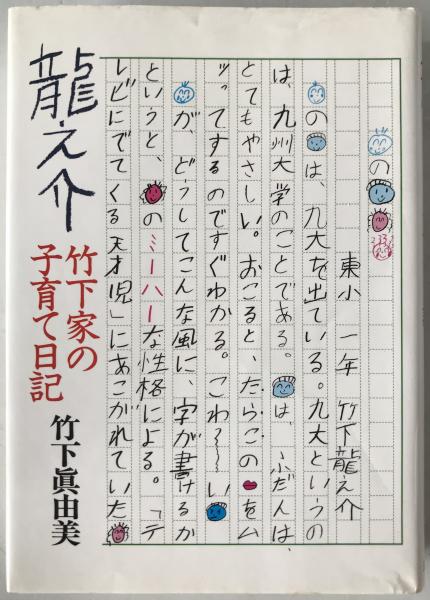 の
東小 一年 竹下龍之介
のは、九大を出ている。九大というの
は、九州大学のことである。は、ふだんは、
とてもやさしい。おこると、たらこのをム
ッってするのですぐわかる。こわ〜〜い
が、どうしてこんな風に、字が書けるか
というと、のミーハーな性格による。「テ
レビにでてくる天才児」にあこがれていた
龍之介
竹下家の
子育て日記
竹下眞由美